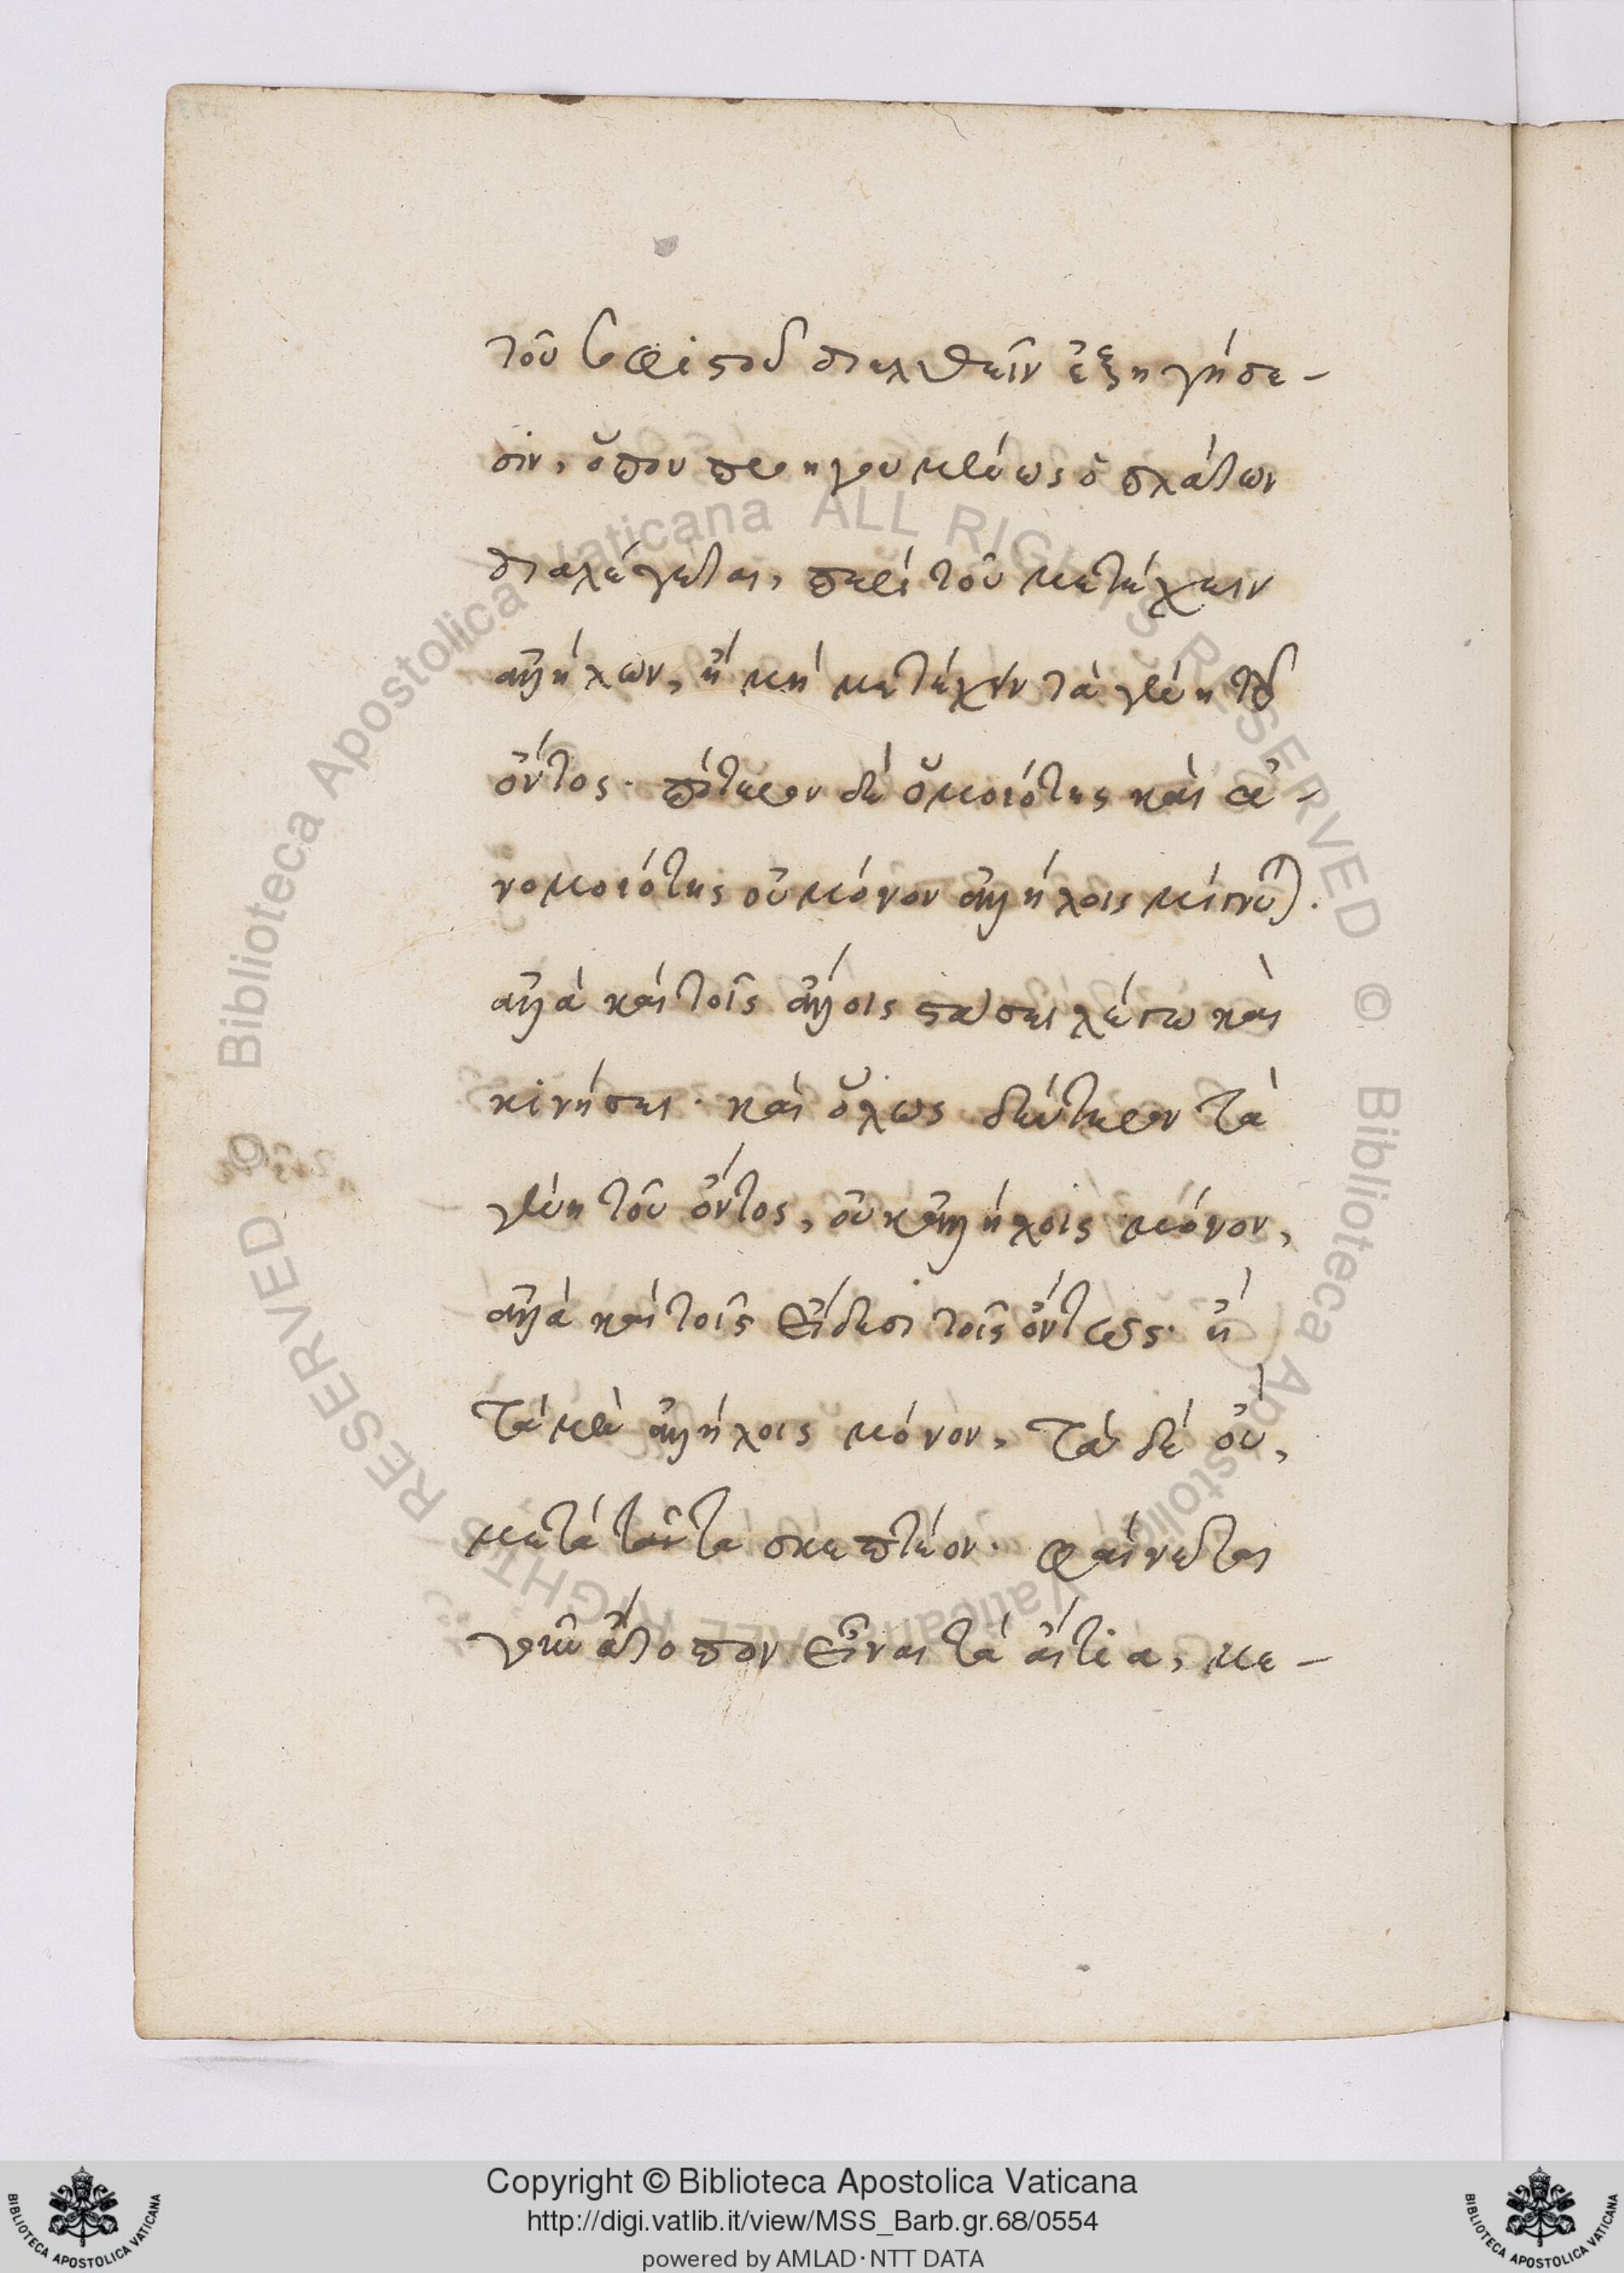 τοῦ σοφιστοῦ διελθεῖν ἐξηγήσε-
σιν, ὅπου προηγουμένως ὁ πλάτων
διαλέγεται, περὶ τοῦ μετέχειν
ἀλλήλων, ἢ μὴ μετέχειν τὰ γένη τοῦ
ὄντος· πότερον δὲ ὁμοιότης καὶ ἀ-
νομοιότης οὐ μόνον ἀλλήλοις μίγνυται.
ἀλλὰ καὶ τοῖς ἄλλοις στάσει λέγω καὶ
κινήσει· καὶ ὅλως δεύτερον τὰ
γένη τοῦ ὄντος, οὐκ ἀλλήλοις μόνον,
ἀλλὰ καὶ τοῖς εἴδεσι τοῖς ὄντως· ἢ
τὰ μὲν ἀλλήλοις μόνον, τὰ δὲ οὔ,
μετὰ ταῦτα σκεπτέον· φαίνεται
γοῦν ἄτοπον εἶναι τὰ αἴτια, με-
Biblioteca Apostolica Vaticana ALL RIGHTS RESERVED ©
Biblioteca Apostolica Vaticana ALL RIGHTS RESERVED ©
Copyright © Biblioteca Apostolica Vaticana
http://digi.vatlib.it/view/MSS_Barb.gr.68/0554
powered by AMLAD·NTT DATA
BIBLIOTECA APOSTOLICA VATICANA
BIBLIOTECA APOSTOLICA VATICANA